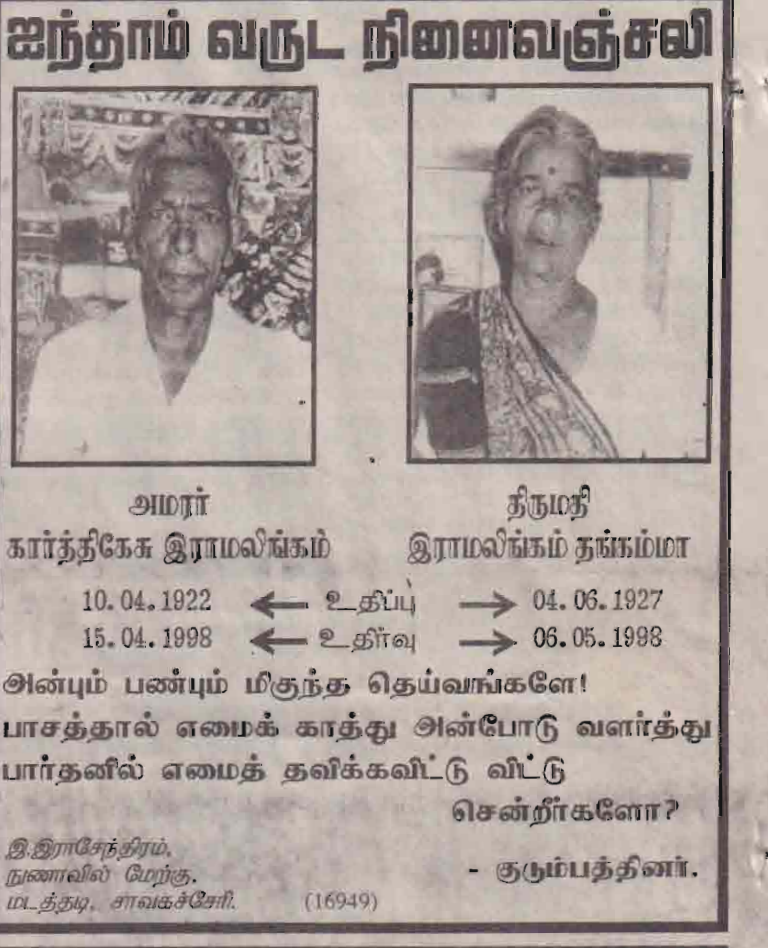 ஐந்தாம் வருட நினைவஞ்சலி
அமரர்
கார்த்திகேசு இராமலிங்கம்
திருமதி
இராமலிங்கம் தங்கம்மா
10.04.1922 ← உதிப்பு → 04.06.1927
15.04.1998 ← உதிர்வு → 06.05.1998
அன்பும் பண்பும் மிகுந்த தெய்வங்களே!
பாசத்தால் எமைக் காத்து அன்போடு வளர்த்து
பார்தனில் எமைத் தவிக்கவிட்டு விட்டு
சென்றீர்களோ?
இ.இராசேந்திரம்,
நுணாவில் மேற்கு,
மடத்தடி, சாவகச்சேரி. (16949)
- குடும்பத்தினர்.